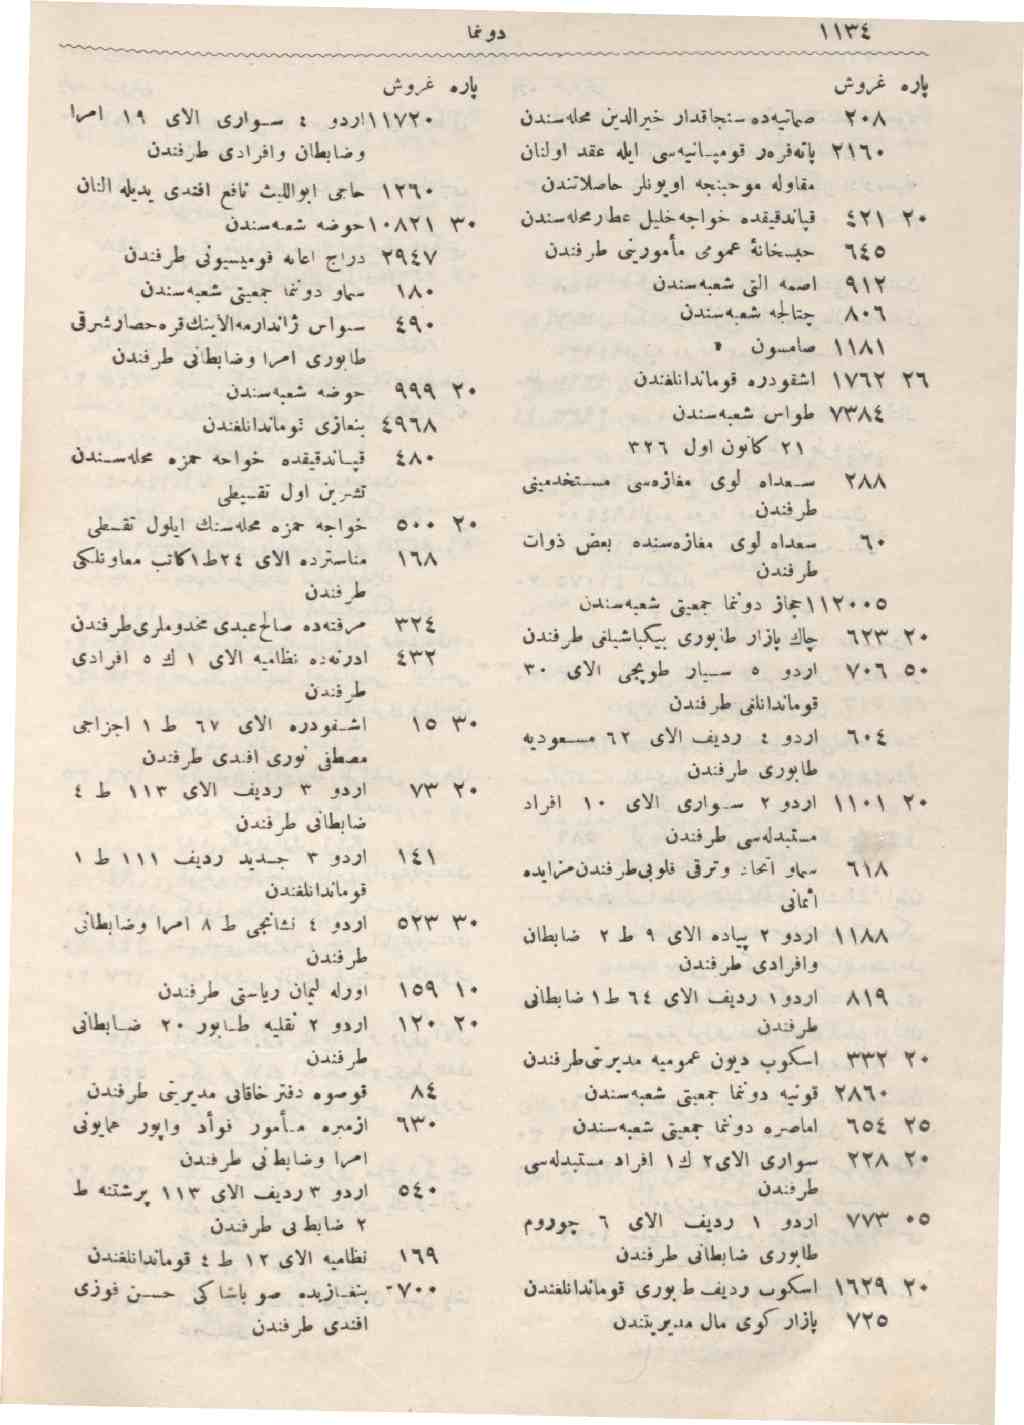 ١١٣٤
دونما
پاره غروش
٢٠٨ صماتیه‌ده سنجاقدار خیرالدین محله‌سندن
٢١٦٠ پاته‌فره‌ر قومپانیه‌سی ایله عقد اولنان
مقاوله موجبنجه اویونلر حاصلاتندن
٢٠ ٤٢١ قپاندقیقده خواجه خلیل عطار محله‌سندن
٦٤٥ حبسخانهٔ عمومی مأمورینی طرفندن
٩١٢ اصمه التی شعبه‌سندن
٨٠٦ چتالجه شعبه‌سندن
١١٨١ صامسون »
٢٦ ١٧٦٢ اشقودره قوماندانلغندن
٧٣٨٤ طواس شعبه‌سندن
٢١ کانون اول ٣٢٦
٢٨٨ سعداه لوی مغازه‌سی مستخدمینی
طرفندن
٦٠ سعداه لوی مغازه‌سنده بعض ذوات
طرفندن
١١٢٠٠٥ حجاز دونما جمعیتی شعبه‌سندن
٢٠ ٦٢٣ چاك پازار طابوری بیكباشیلغی طرفندن
٥٠ ٧٠٦ اردو ٥ سیار طوپجی الای ٣٠
قوماندانلغی طرفندن
٦٠٤ اردو ٤ ردیف الای ٦٢ مسعودیه
طابوری طرفندن
٢٠ ١١٠١ اردو ٢ سواری الای ١٠ افراد
مستبدله‌سی طرفندن
٦١٨ سماو اتحاد وترقی قلوبی طرفندن مزایده
اثمانی
١١٨٨ اردو ٢ پیاده الای ٩ ط ٢ ضابطان
وافرادی طرفندن
٨١٩ اردو ١ ردیف الای ٦٤ ط ١ ضابطانی
طرفندن
٢٠ ٣٣٢ اسكوب دیون عمومیه مدیرتی طرفندن
٢٨٦٠ قونیه دونما جمعیتی شعبه‌سندن
٢٥ ٦٥٤ اماصره دونما جمعیتی شعبه‌سندن
٢٠ ٢٢٨ سواری الای ٢ ك ١ افراد مستبدله‌سی
طرفندن
٠٥ ٧٧٣ اردو ١ ردیف الای ٦ چوروم
طابوری ضابطانی طرفندن
٢٠ ١٦٢٩ اسكوب ردیف طابوری قوماندانلغندن
٧٢٥ پازار كوی مال مدیریتندن
پاره غروش
١١٧٢٠ اردو ٤ سواری الای ١٩ امرا
وضابطان وافرادی طرفندن
١٢٦٠ حاجی ابواللیث نافع افندی یدیله النان
٣٠ ١٠٨٢١ حوضه شعبه‌سندن
٢٩٤٧ دراج اعانه قومیسیونی طرفندن
١٨٠ سماو دونما جمعیتی شعبه‌سندن
٤٩٠ سواس ژاندارمه الاینك قره‌حصار شرقی
طابوری امرا وضابطانی طرفندن
٢٠ ٩٩٩ حوضه شعبه‌سندن
٤٩٦٨ بنغازی قوماندانلغندن
٤٨٠ قپاندقیقده خواجه حمزه محله‌سندن
تشرین اول تقسیطی
٢٠ ٥٠٠ خواجه حمزه محله‌سنك ایلول تقسطی
١٦٨ مناسترده الای ٢٤ ط ١ كاتب معاونلكی
طرفندن
٣٢٤ مرفته‌ده صالح عبدی مخدوملری طرفندن
٤٣٢ ادرنه‌ده نظامیه الای ١ ك ٥ افرادی
طرفندن
٣٠ ١٥ اشقودره الای ٦٧ ط ١ اجزاجی
مصطفی نوری افندی طرفندن
٢٠ ٧٣ اردو ٣ ردیف الای ١١٣ ط ٤
ضابطانی طرفندن
١٤١ اردو ٣ جدید ردیف ١١١ ط ١
قوماندانلغندن
٣٠ ٥٢٣ اردو ٤ نشانجی ط ٨ امرا وضابطانی
طرفندن
١٠ ١٥٩ اورله لیمان ریاستی طرفندن
٢٠ ١٢٠ اردو ٢ نقلیه طابور ٢٠ ضابطانی
طرفندن
٨٤ قوصوه دفتر خاقانی مدیریتی طرفندن
٦٣٠ ازمیره مأمور فوأد واپور همایونی
امرا وضابطانی طرفندن
٥٤٠ اردو ٣ ردیف الای ١١٣ پرشتنه ط
٢ ضابطانی طرفندن
١٦٩ نظامیه الای ١٢ ط ٤ قوماندانلغندن
٧٠٠ بنغازیده صو باشاكی حسن فوزی
افندی طرفندن